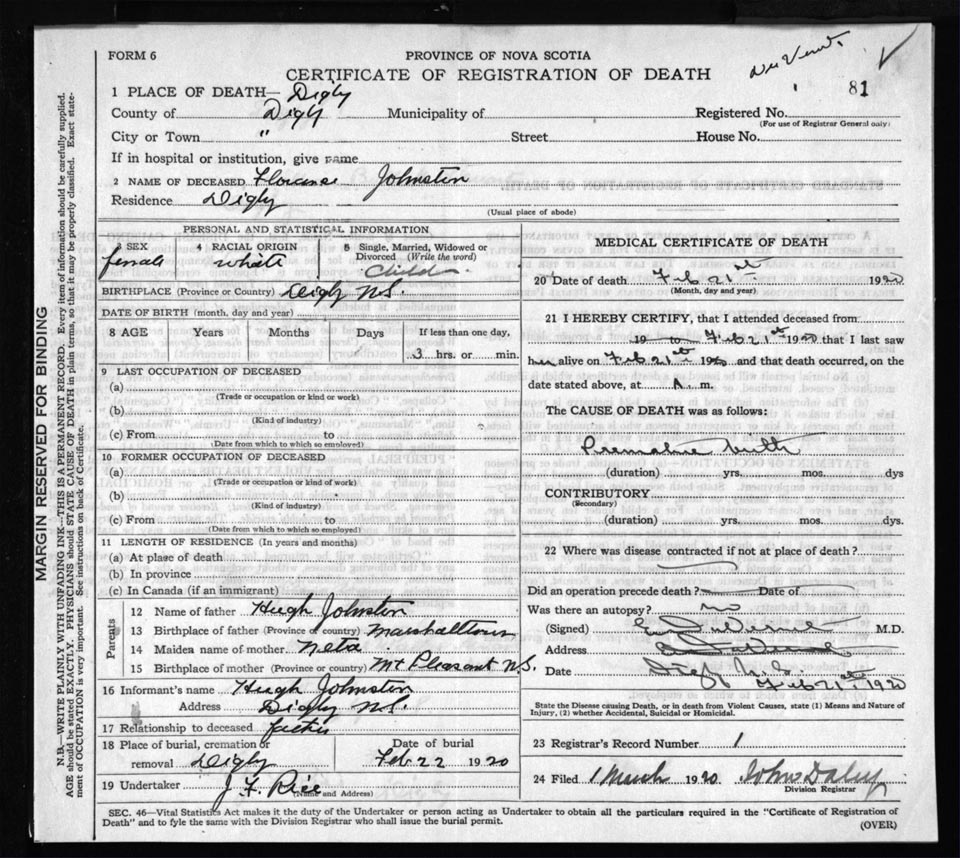 FORM 6
PROVINCE OF NOVA SCOTIA
CERTIFICATE OF REGISTRATION OF DEATH
81
1 PLACE OF DEATH— Digby
County of Digby Municipality of Registered No.
(For use of Registrar General only)
City or Town " Street House No.
If in hospital or institution, give name
2 NAME OF DECEASED Florance Johnston
Residence Digby
(Usual place of abode)
PERSONAL AND STATISTICAL INFORMATION
3 SEX female
4 RACIAL ORIGIN white
5 Single, Married, Widowed or Divorced (Write the word) Child
BIRTHPLACE (Province or Country) Digby N.S.
DATE OF BIRTH (month, day and year)
8 AGE Years Months Days If less than one day,
3 hrs. or min.
9 LAST OCCUPATION OF DECEASED
(a)
(Trade or occupation or kind of work)
(b)
(Kind of industry)
(c) From to
(Date from which to which so employed)
10 FORMER OCCUPATION OF DECEASED
(a)
(Trade or occupation or kind of work)
(b)
(Kind of industry)
(c) From to
(Date from which to which so employed)
11 LENGTH OF RESIDENCE (In years and months)
(a) At place of death
(b) In province
(c) In Canada (if an immigrant)
Parents
12 Name of father Hugh Johnston
13 Birthplace of father (Province or country) Marshalltown
14 Maiden name of mother Neta
15 Birthplace of mother (Province or country) Mt Pleasant N.S.
16 Informant's name Hugh Johnston
Address Digby N.S.
17 Relationship to deceased father
18 Place of burial, cremation or Date of burial
removal Digby Feb 22 1920
19 Undertaker J. F. Rice
(Name and Address)
MEDICAL CERTIFICATE OF DEATH
20 Date of death Feb 21st 1920
(Month, day and year)
21 I HEREBY CERTIFY, that I attended deceased from
19 to Feb 21st 1920 that I last saw
her alive on Feb 21st 1920 and that death occurred, on the
date stated above, at A. m.
The CAUSE OF DEATH was as follows:
Premature birth
(duration) yrs. mos. dys
CONTRIBUTORY
(Secondary)
(duration) yrs. mos. dys.
22 Where was disease contracted if not at place of death?
Did an operation precede death? Date of
Was there an autopsy? no
(Signed) M.D.
Address
Digby N.S.
Date Feb 21st, 1920
State the Disease causing Death, or in death from Violent Causes, state (1) Means and Nature of
Injury, (2) whether Accidental, Suicidal or Homicidal.
23 Registrar's Record Number 1
24 Filed 1 March 1920 John Daley
Division Registrar
SEC. 46—Vital Statistics Act makes it the duty of the Undertaker or person acting as Undertaker to obtain all the particulars required in the "Certificate of Registration of
Death" and to fyle the same with the Division Registrar who shall issue the burial permit.
(OVER)
MARGIN RESERVED FOR BINDING
N.B.—WRITE PLAINLY, WITH UNFADING INK—THIS IS A PERMANENT RECORD. Every item of information should be carefully supplied.
AGE should be stated EXACTLY. PHYSICIANS should STATE CAUSE OF DEATH in plain terms, so that it may be properly classified. Exact state-
ment of OCCUPATION is very important. See instructions on back of Certificate.